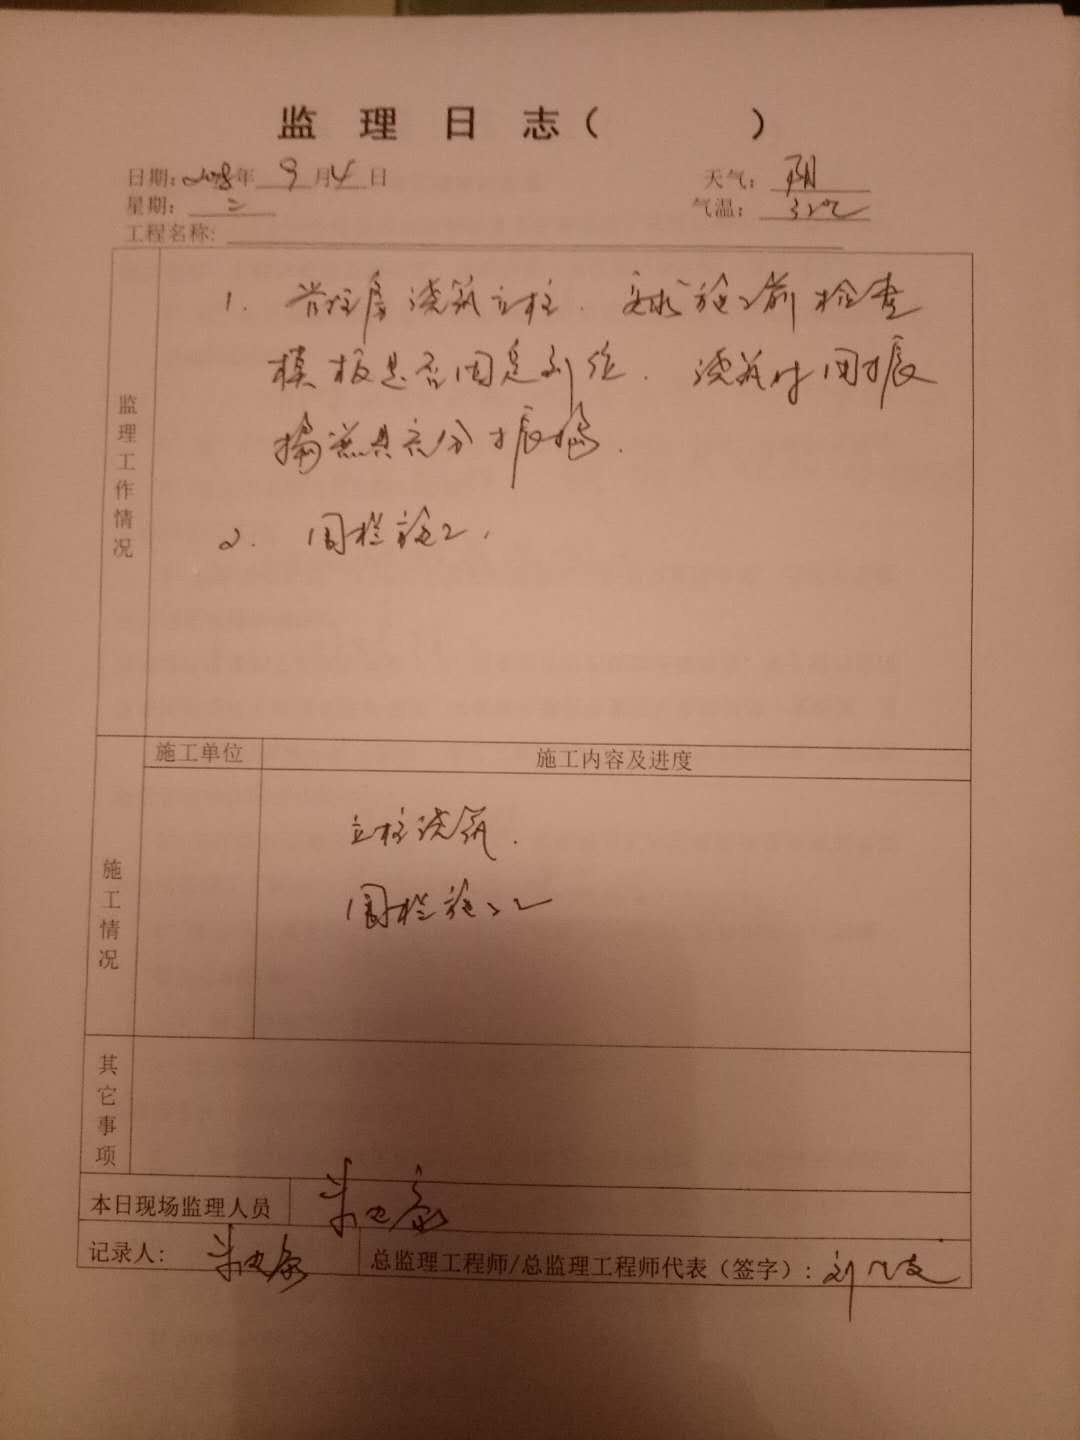 监理日志（ ）
日期：2018年 9月4日 天气：阴
星期：二 气温：32℃
工程名称：
监理工作情况
1. 浇筑立柱. 要求施工前检查
模板是否固定到位. 浇筑时用振
充分振捣.
2. 围栏施工.
施工单位 施工内容及进度
施工情况
立柱浇筑.
围栏施工
其它事项
本日现场监理人员
记录人： 总监理工程师/总监理工程师代表（签字）：刘